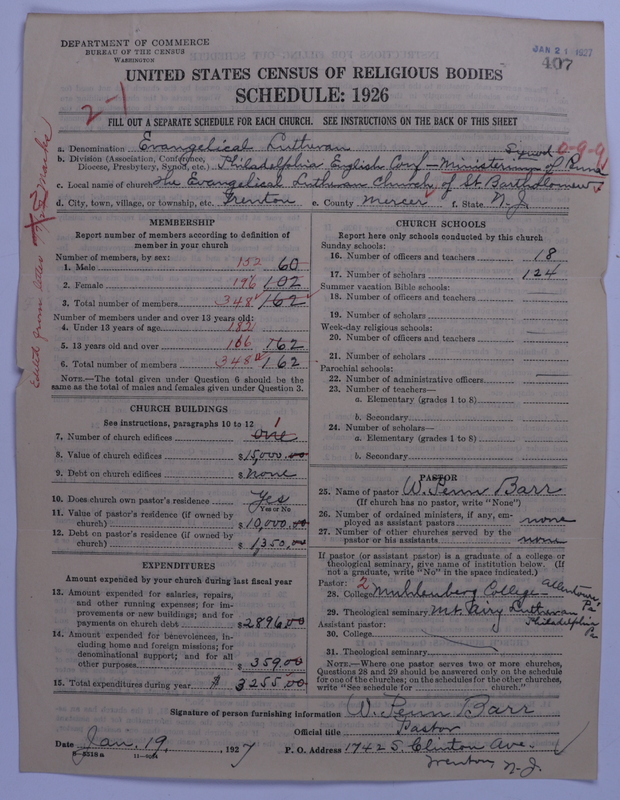 DEPARTMENT OF COMMERCE
BUREAU OF THE CENSUS
WASHINGTON
JAN 21 1927
407
UNITED STATES CENSUS OF RELIGIOUS BODIES
SCHEDULE: 1926
2-1
FILL OUT A SEPARATE SCHEDULE FOR EACH CHURCH. SEE INSTRUCTIONS ON THE BACK OF THIS SHEET
a. Denomination Evangelical Lutheran Synod 0-9-9
b. Division (Association, Conference, Diocese, Presbytery, Synod, etc.) Philadelphia English Conf - Ministerium of Penna
c. Local name of church The Evangelical Lutheran Church of St. Bartholomew
d. City, town, village, or township, etc. Trenton e. County Mercer f. State N-J.
MEMBERSHIP
Report number of members according to definition of
member in your church
Number of members, by sex:
1. Male 152 60
2. Female 196 102
3. Total number of members 348 162
Number of members under and over 13 years old:
4. Under 13 years of age 182
5. 13 years old and over 166 162
6. Total number of members 348 162
NOTE.—The total given under Question 6 should be the
same as the total of males and females given under Question 3.
CHURCH BUILDINGS
See instructions, paragraphs 10 to 12
7. Number of church edifices one 1
8. Value of church edifices $15,000.00
9. Debt on church edifices $ None
10. Does church own pastor's residence Yes
Yes or No
11. Value of pastor's residence (if owned by
church) $10,000.00
12. Debt on pastor's residence (if owned by
church) $1,350.00
EXPENDITURES
Amount expended by your church during last fiscal year
13. Amount expended for salaries, repairs,
and other running expenses; for im-
provements or new buildings; and for
payments on church debt $2896.00
14. Amount expended for benevolences, in-
cluding home and foreign missions; for
denominational support; and for all
other purposes $359.00
15. Total expenditures during year $ 3255.00
CHURCH SCHOOLS
Report here only schools conducted by this church
Sunday schools:
16. Number of officers and teachers 18
17. Number of scholars 124
Summer vacation Bible schools:
18. Number of officers and teachers
19. Number of scholars
Week-day religious schools:
20. Number of officers and teachers
21. Number of scholars
Parochial schools:
22. Number of administrative officers
23. Number of teachers—
a. Elementary (grades 1 to 8)
b. Secondary
24. Number of scholars—
a. Elementary (grades 1 to 8)
b. Secondary
PASTOR
25. Name of pastor W. Penn Barr
(If church has no pastor, write "None")
26. Number of ordained ministers, if any, em-
ployed as assistant pastors none
27. Number of other churches served by the
pastor or his assistants none
If pastor (or assistant pastor) is a graduate of a college or
theological seminary, give name of institution below. (If
not a graduate, write "No" in the space indicated.)
Pastor: 2
28. College Muhlenberg College Allentown, Pa
29. Theological seminary Mt. Airy Lutheran Philadelphia Pa
Assistant pastor:
30. College
31. Theological seminary
NOTE.—Where one pastor serves two or more churches,
Questions 28 and 29 should be answered only on the schedule
for one of the churches; on the schedules for the other churches,
write "See schedule for church."
Signature of person furnishing information W. Penn Barr
Official title Pastor
Date Jan. 19, 1927 P. O. Address 1742 S. Clinton Ave.
Trenton, N-J.
11—9034